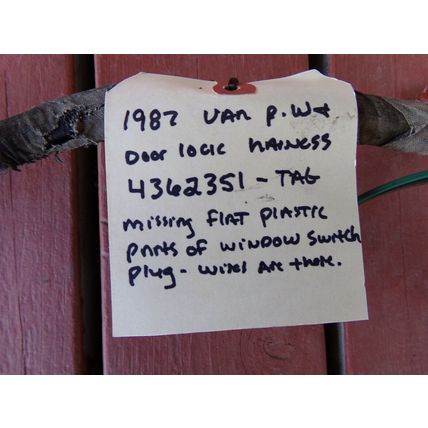 1987 VAN P.W &
DOOR LOCK HARNESS
4362351 - TAG
MISSING FLAT PLASTIC
PARTS OF WINDOW SWITCH
PLUG - WIRES ARE THERE.